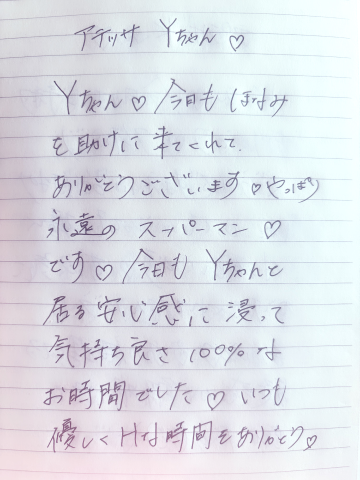 アテッサ Yちゃん♡
Yちゃん♡今日もほなみ
を助けに来てくれて
ありがとうございます♡やっぱり
永遠のスーパーマン♡
です♡今日もYちゃんと
居る安心感に浸って
気持ち良さ100%な
お時間でした♡いつも
優しくHな時間をありがとう♡